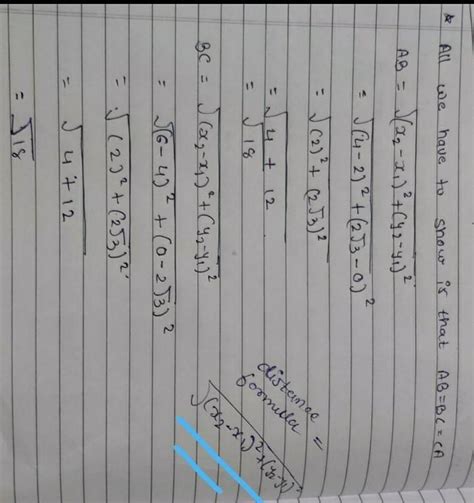 * All we have to show is that AB=BC=CA
AB = √(x₂-x₁)²+(y₂-y₁)²
= √(4-2)²+(2√3-0)²
= √(2)²+(2√3)²
= √4+12
= √18
BC = √(x₂-x₁)²+(y₂-y₁)²
= √(6-4)²+(0-2√3)²
= √(2)²+(2√3)²
= √4+12
= √18
distance
formula =
√(x₂-x₁)²+(y₂-y₁)²